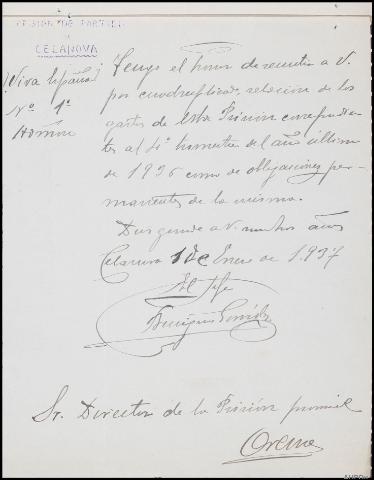 PRISIÓN DE PARTIDO
DE
CELANOVA
¡Viva España!
Nº 1º
Admón
Tengo el honor de remitir a V.
por cuadruplicado relación de los
gastos de esta Prisión correspondien-
tes al 4º trimestre del año último
de 1936 como de obligaciones per-
manentes de la misma.
Dios guarde a V. muchos años
Celanova 1 de Enero de 1.937
El Jefe
Sr. Director de la Prisión provincial
Orense